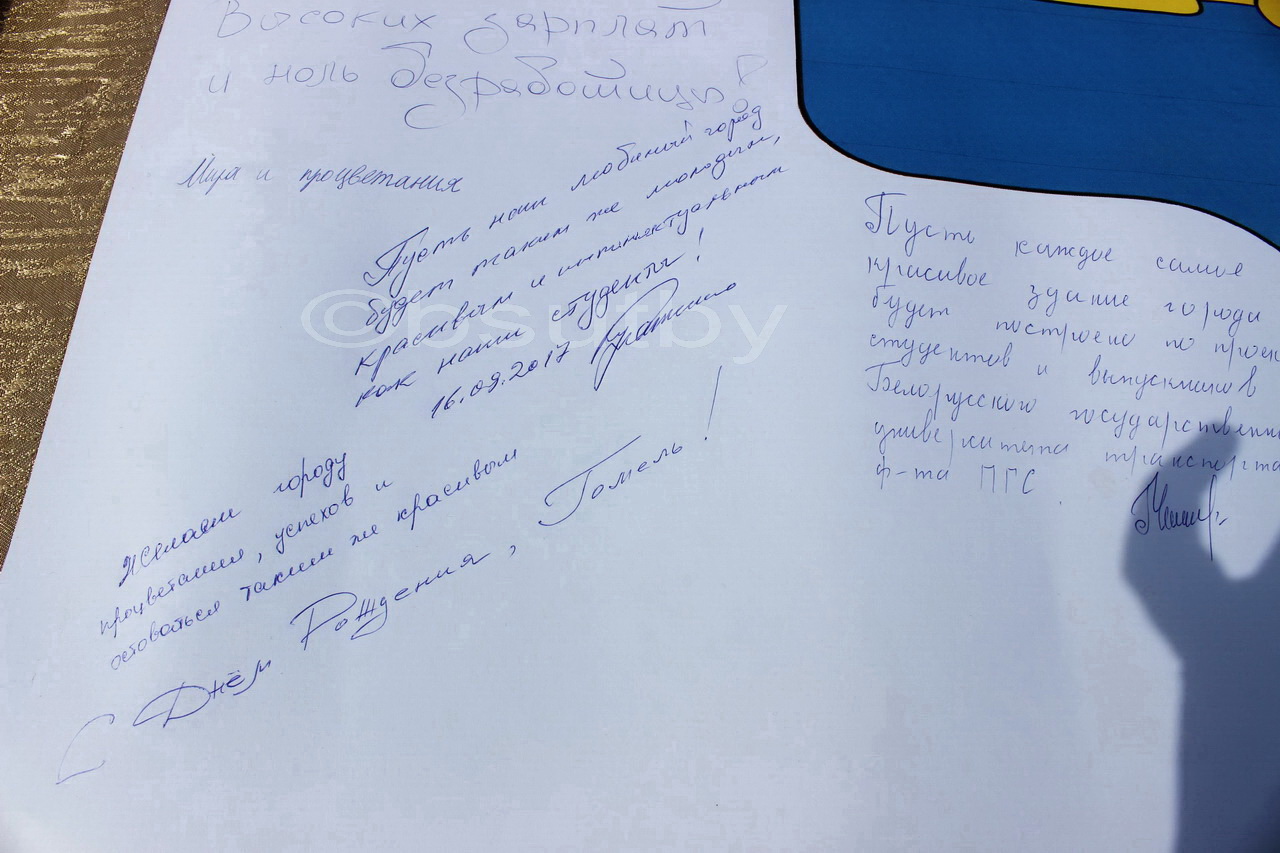 Высоких зарплат
и ноль безработицы!
Мира и процветания
Пусть наш любимый город
будет таким же молодым,
красивым и интеллектуальным
как наши студенты!
16.09.2017
Желаем городу
процветания, успехов и
оставаться таким же красивым
С Днём Рождения, Гомель!
Пусть каждое самое
красивое здание города
будет построено по проек
студентов и выпускников
Белорусского государственно
университета транспорта
ф-та ПГС
©bsutby